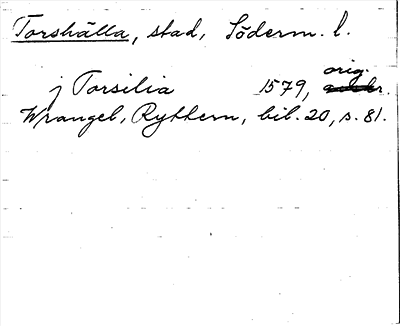 Torshälla, stad, Söderm. l.
j Torsilia 1579, orig.
Wrangel, Ryttern, bil. 20, s. 81.